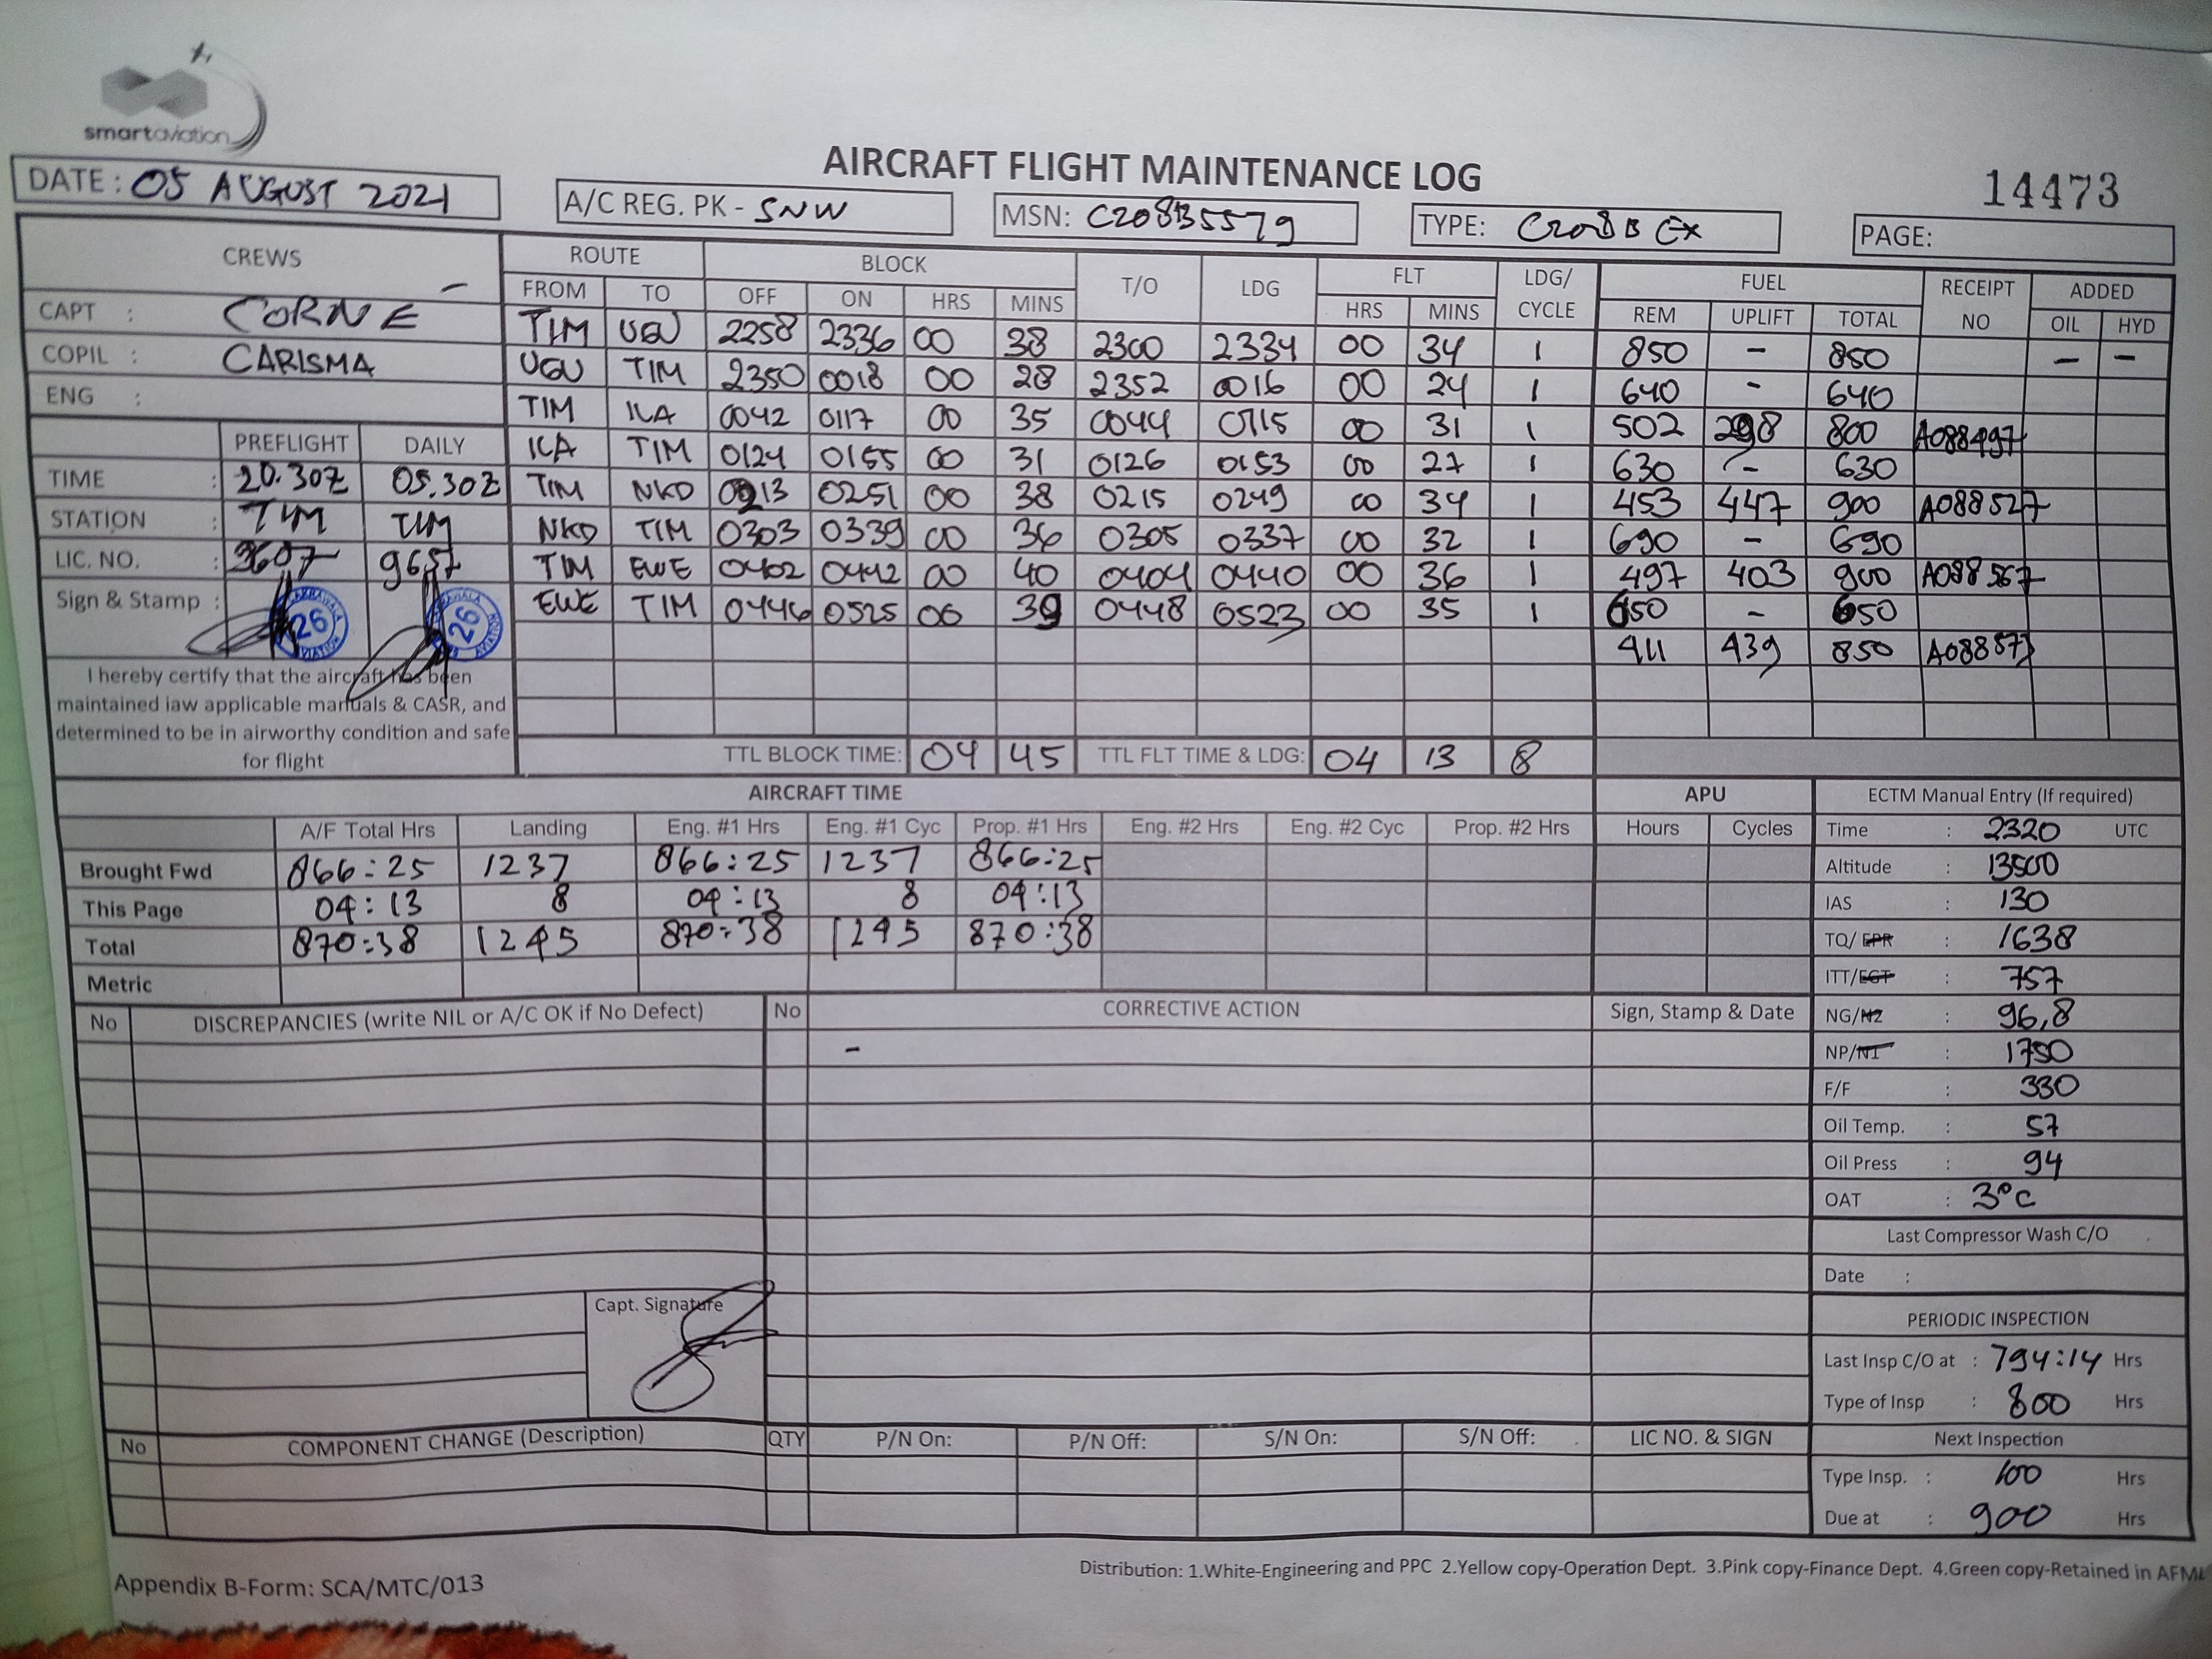 smartaviation
AIRCRAFT FLIGHT MAINTENANCE LOG
14473
DATE : 05 AUGUST 2021
A/C REG. PK - SNW
MSN: C208B5579
TYPE: C208B EX
PAGE:
CREWS ROUTE BLOCK T/O LDG FLT LDG/ CYCLE FUEL RECEIPT NO ADDED
FROM TO OFF ON HRS MINS HRS MINS REM UPLIFT TOTAL OIL HYD
CAPT : CORNE –
COPIL : CARISMA
ENG :
TIM UGU 2258 2336 00 38 2300 2334 00 34 1 850 – 850 – –
UGU TIM 2350 0018 00 28 2352 0016 00 24 1 640 - 640
TIM ILA 0042 0117 00 35 0044 0115 00 31 1 502 298 800 A088497
ILA TIM 0124 0155 00 31 0126 0153 00 27 1 630 - 630
TIM NKD 0213 0251 00 38 0215 0249 00 34 1 453 447 900 A088527
NKD TIM 0303 0339 00 36 0305 0337 00 32 1 690 – 690
TIM EWE 0402 0442 00 40 0404 0440 00 36 1 497 403 900 A088567
EWE TIM 0446 0525 00 39 0448 0523 00 35 1 650 – 650
411 439 850
PREFLIGHT DAILY
TIME : 20.30Z 05.30Z
STATION : TIM TIM
LIC. NO. : 9657
Sign & Stamp :
26 26
I hereby certify that the aircraft has been
maintained iaw applicable manuals & CASR, and
determined to be in airworthy condition and safe
for flight
TTL BLOCK TIME: 04 45 TTL FLT TIME & LDG: 04 13 8
AIRCRAFT TIME APU
A/F Total Hrs Landing Eng. #1 Hrs Eng. #1 Cyc Prop. #1 Hrs Eng. #2 Hrs Eng. #2 Cyc Prop. #2 Hrs Hours Cycles
Brought Fwd 866:25 1237 866:25 1237 866:25
This Page 04:13 8 04:13 8 04:13
Total 870:38 1245 870:38 1245 870:38
Metric
ECTM Manual Entry (If required)
Time : 2320 UTC
Altitude : 13500
IAS : 130
TQ/EPR : 1638
ITT/EGT : 757
NG/N2 : 96,8
NP/N1 : 1750
F/F : 330
Oil Temp. : 57
Oil Press : 94
OAT : 3°C
Last Compressor Wash C/O
Date :
PERIODIC INSPECTION
Last Insp C/O at : 794:14 Hrs
Type of Insp : 800 Hrs
Next Inspection
Type Insp. : 100 Hrs
Due at : 900 Hrs
No DISCREPANCIES (write NIL or A/C OK if No Defect) No CORRECTIVE ACTION Sign, Stamp & Date
–
Capt. Signature
No COMPONENT CHANGE (Description) QTY P/N On: P/N Off: S/N On: S/N Off: LIC NO. & SIGN
Distribution: 1.White-Engineering and PPC 2.Yellow copy-Operation Dept. 3.Pink copy-Finance Dept. 4.Green copy-Retained in AFML
Appendix B-Form: SCA/MTC/013